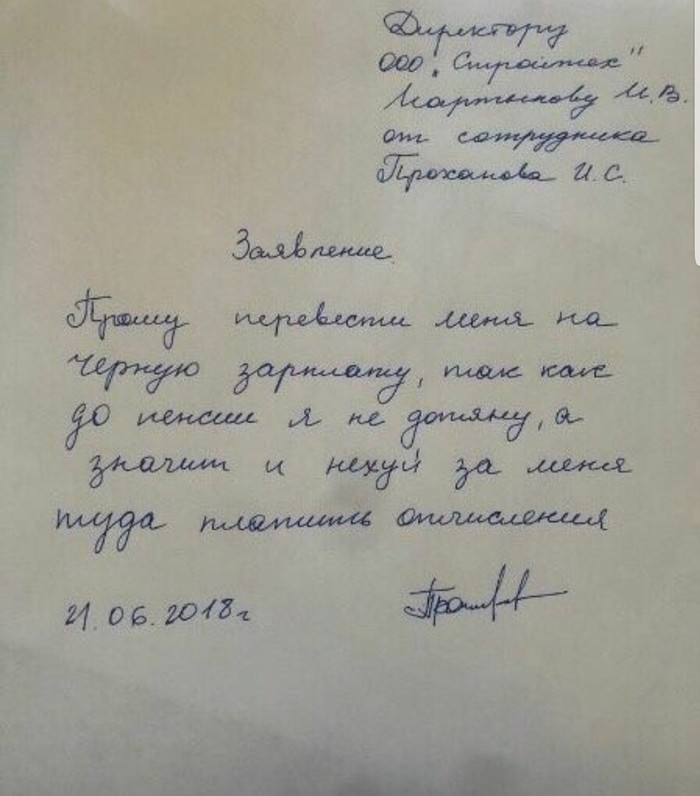 Директору
ООО "Стройтех"
Мартынову И.В.
от сотрудника
Проханова И.С.
Заявление.
Прошу перевести меня на
черную зарплату, так как
до пенсии я не дотяну, а
значит и нехуй за меня
туда платить отчисления
21.06.2018г